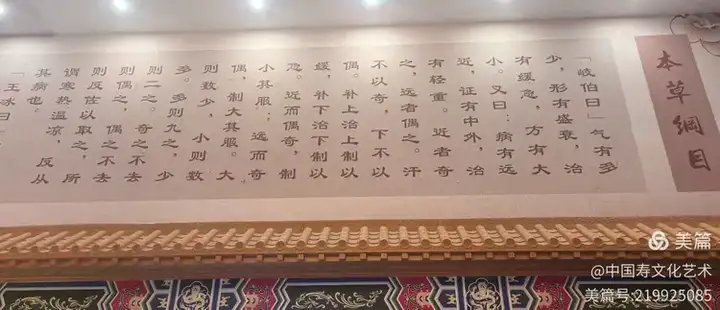 本草綱目
「岐伯曰」气有多
少，形有盛衰，治
有缓急，方有大
小。又曰：病有远
近，证有中外，治
有轻重。近者奇
之，远者偶之。汗
不以奇，下不以
偶。补上治上制以
缓，补下治下制以
急。近而偶奇，制
小其服；远而奇
偶，制大其服。大
则数少，小则数
多。多则九之，少
则二之。奇之不去
则偶之，偶之不去
则反佐以取之，所
谓寒热温凉，反从
其病也。
「王冰曰」
美篇
@中国寿文化艺术
美篇号:219925085